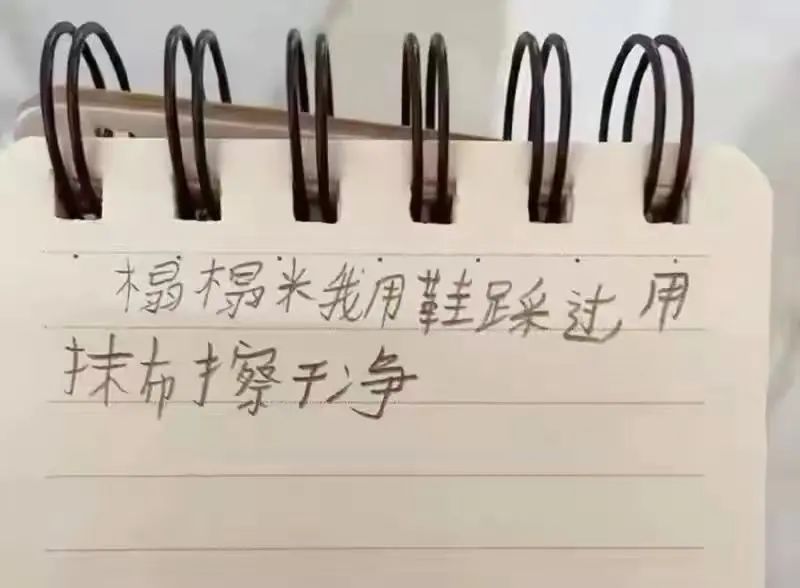 榻榻米我用鞋踩过用
抹布擦干净